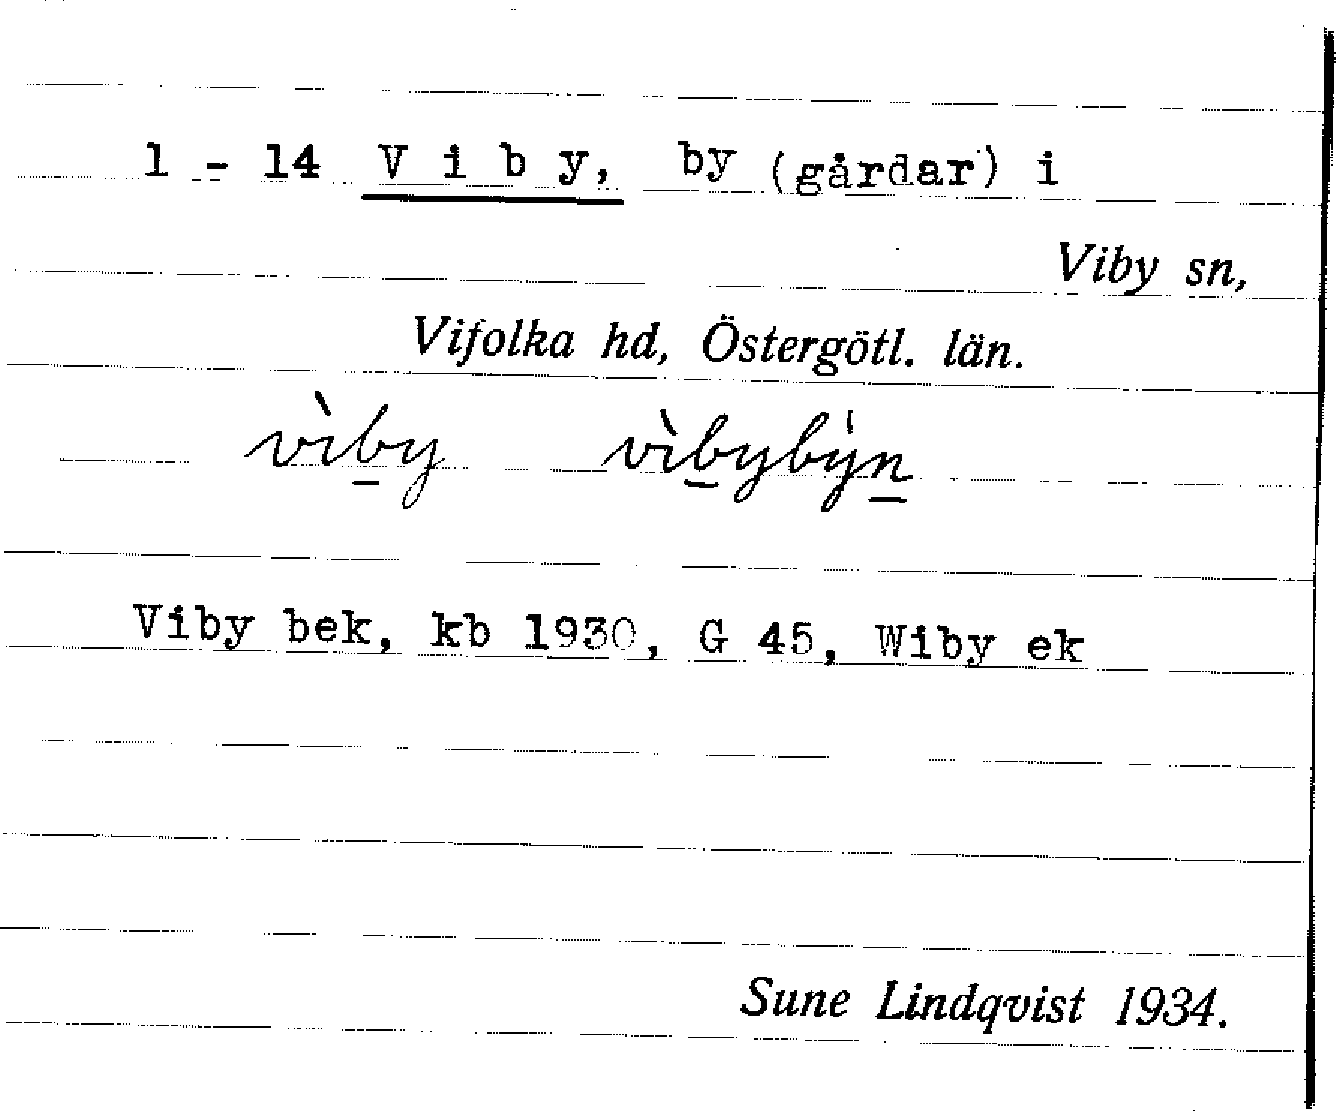 1 - 14 V i b y, by (gårdar) i
Viby sn,
Vifolka hd, Östergötl. län.
vìby vìbybýn
Viby bek, kb 1930, G 45, Wiby ek
Sune Lindqvist 1934.